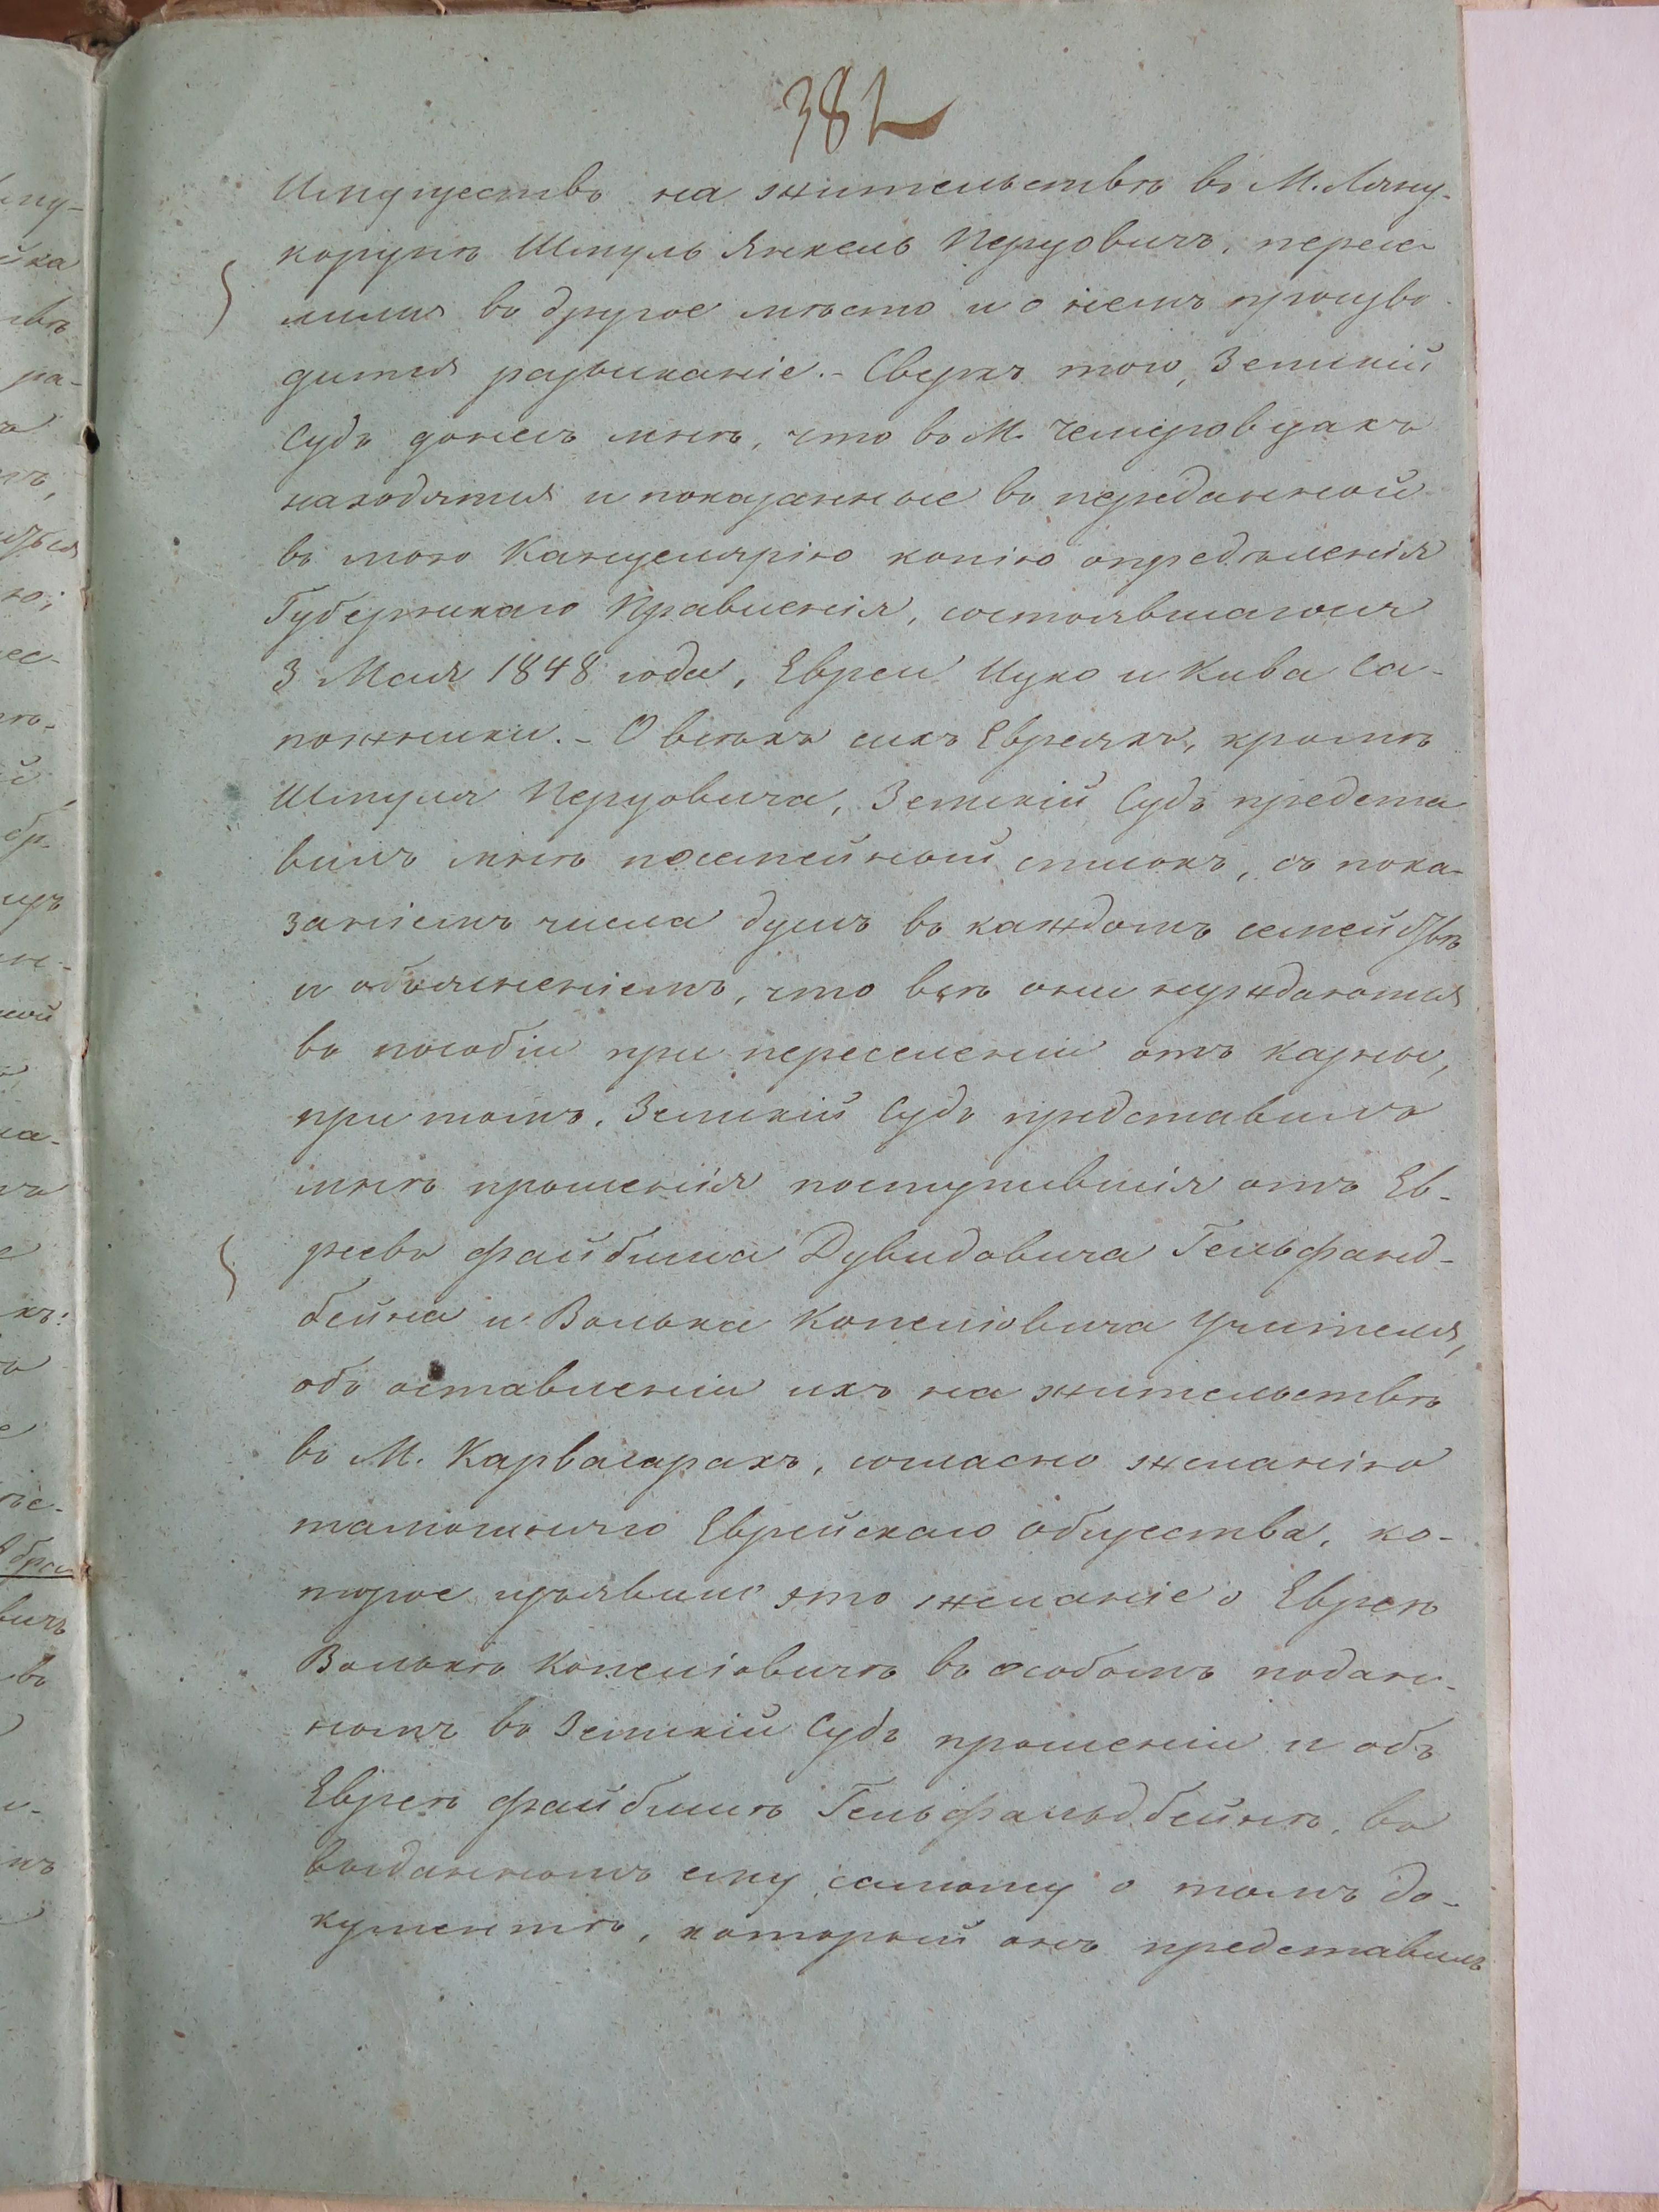 382
Имуществъ на жительствѣ въ М. Лянц-
корунѣ Шмуль Янкель Перцовичъ, пересе-
лился въ другое мѣсто и о немъ произво-
дится разысканіе. - Сверхъ того, Земскій
Судъ донесъ мнѣ, что въ М. Чемеровцахъ
находятся и показанные въ переданной
въ мою Канцелярію копію опредѣленія
Губернскаго Правленія, состоявшагося
3 Мая 1848 года, Евреи Ицко и Кива Са-
пожники. - О всѣхъ сихъ Евреяхъ, кромѣ
Шмуля Перцовича, Земскій Судъ предста
вилъ мнѣ посемейный списокъ, съ пока-
заніемъ числа душъ въ каждомъ семействѣ
и объясненіемъ, что всѣ они нуждаются
въ пособіи при переселеніи отъ казны,
при томъ, Земскій Судъ представилъ
мнѣ прошенія поступившія отъ Ев-
реевъ Файбиша Дувидовича Гельфанд-
бейна и Волька Копеліовича Учителя,
объ оставленіи ихъ на жительствѣ
въ М. Карвасарахъ, согласно желанію
тамошняго Еврейскаго общества, ко-
торое изъявило это желаніе о Евреѣ
Волькѣ Копеліовичѣ въ особомъ подан-
номъ въ Земскій Судъ прошеніи и объ
Евреѣ Файбишѣ Гельфальдбейнѣ, въ
выданномъ ему самому о томъ до-
кументѣ, который онъ представилъ